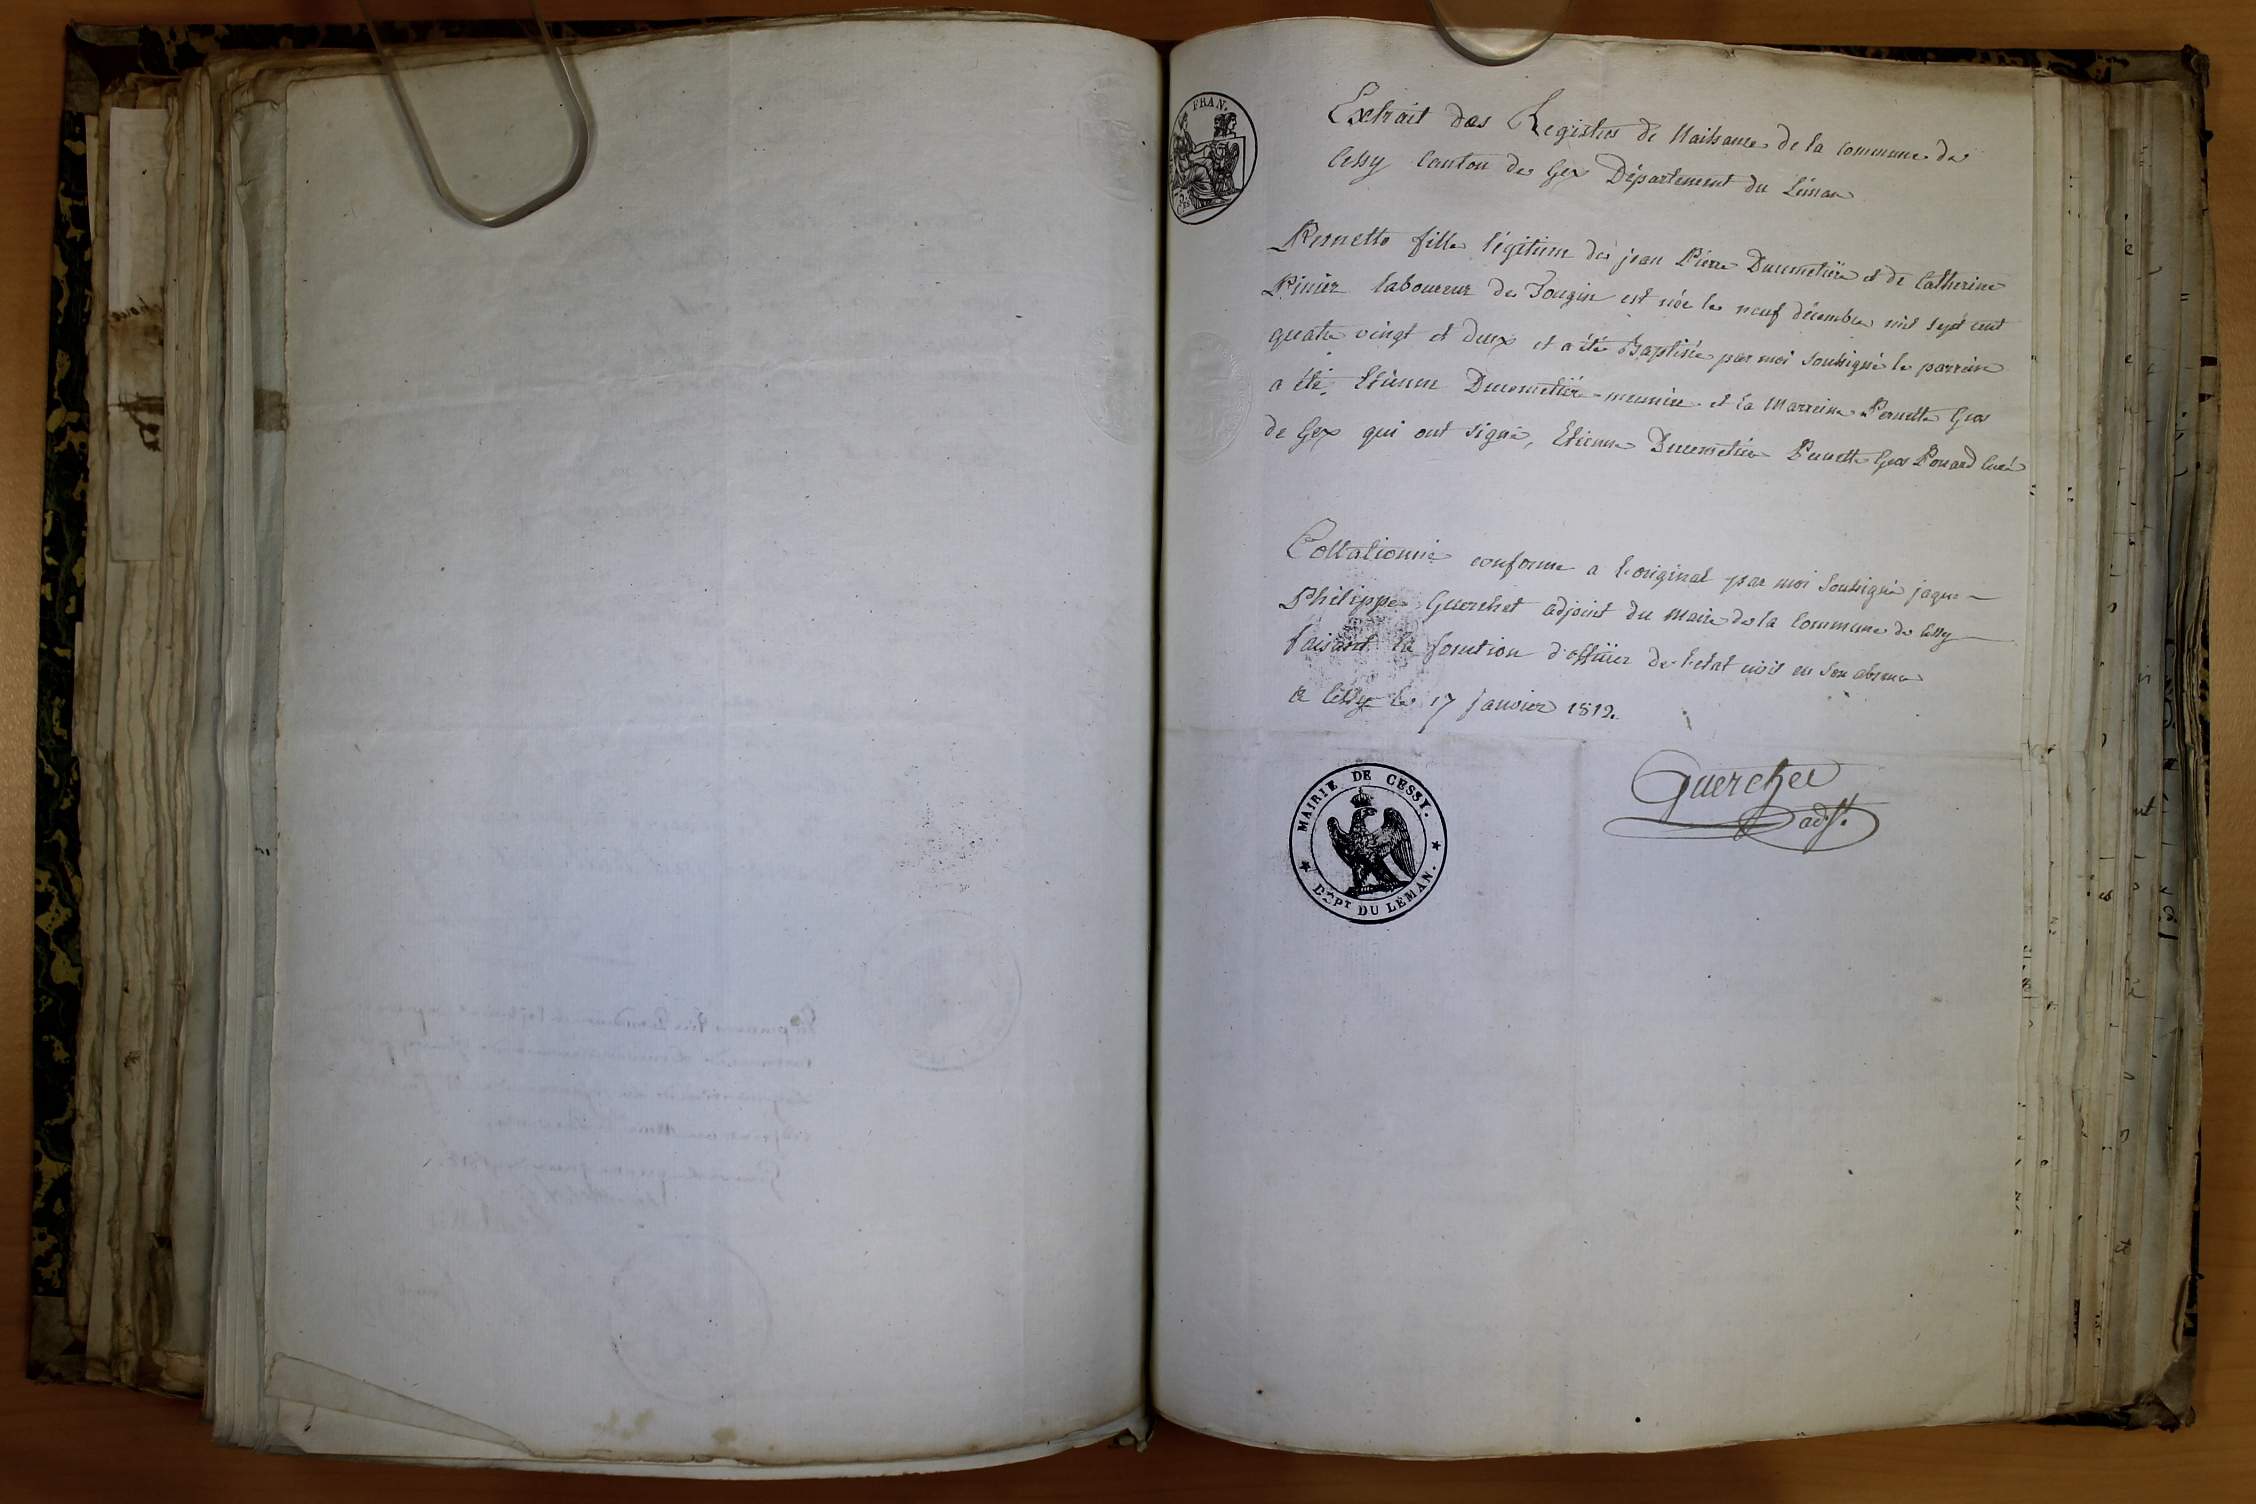 FRAN.
Extrait des Registres de Naissance de la commune de
Cessy Canton de Gex Département du Léman
Pernette fille légitime de jean Pierre Ducimetière et de Catherine
Pinier laboureur de Tougin est née le neuf décembre mil sept cent
quatre vingt et deux et a été Baptisée par moi soussigné le parrein
a été Etienne Ducimetière meunier et la Marreine Pernette Gros
de Gex qui ont signé, Etienne Ducimetière Pernette Gros Ponard Curé
Collationné conforme a l'original par moi soussigné jaque
Philippe Guerchet adjoint du Maire de la Commune de Cessy
faisant la fonction d'officier de l'etat civil en son absence
a Cessy le 17 Janvier 1812.
Guerchet
adjt.
MAIRIE DE CESSY.
DÉPt DU LÉMAN.